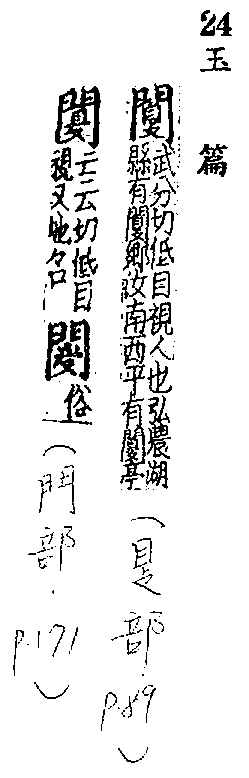 24
玉篇
閺武分切低目視人也弘農湖
縣有閺鄉汝南西平有閺亭
(𥄎部.p.89)
閺亡云切低目
視又地名閿俗
(門部.p.171)